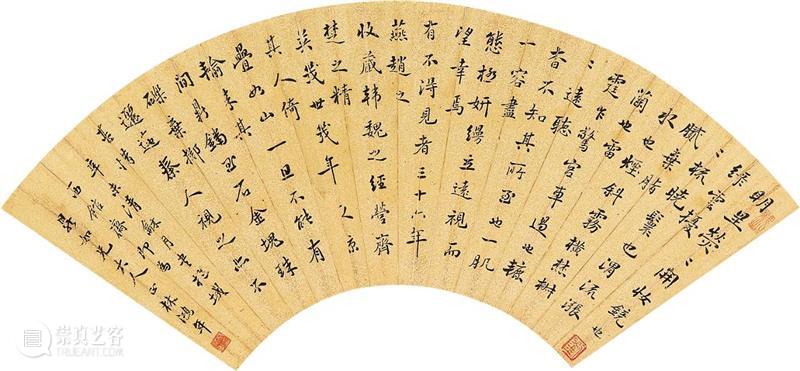 明星熒〻開妝鏡也
綠雲擾
〻梳曉鬟也渭流漲
膩棄脂
水也煙斜霧橫焚椒
蘭也雷
霆乍驚宮車過也轆
〻遠聽
杳不知其所至也一肌
一容盡
態極妍縵立遠視而
望幸焉
有不得見者三十六年
燕趙之
收藏韓魏之經營齊
楚之精
英幾世幾年
其人倚
疊如山一旦不能有
輸來其
間鼎鐺玉石金塊珠
礫棄擲
邐迤秦人視之亦不
甚惜
辛酉
大人正林鴻年
崇真艺客
TRUEART.COM